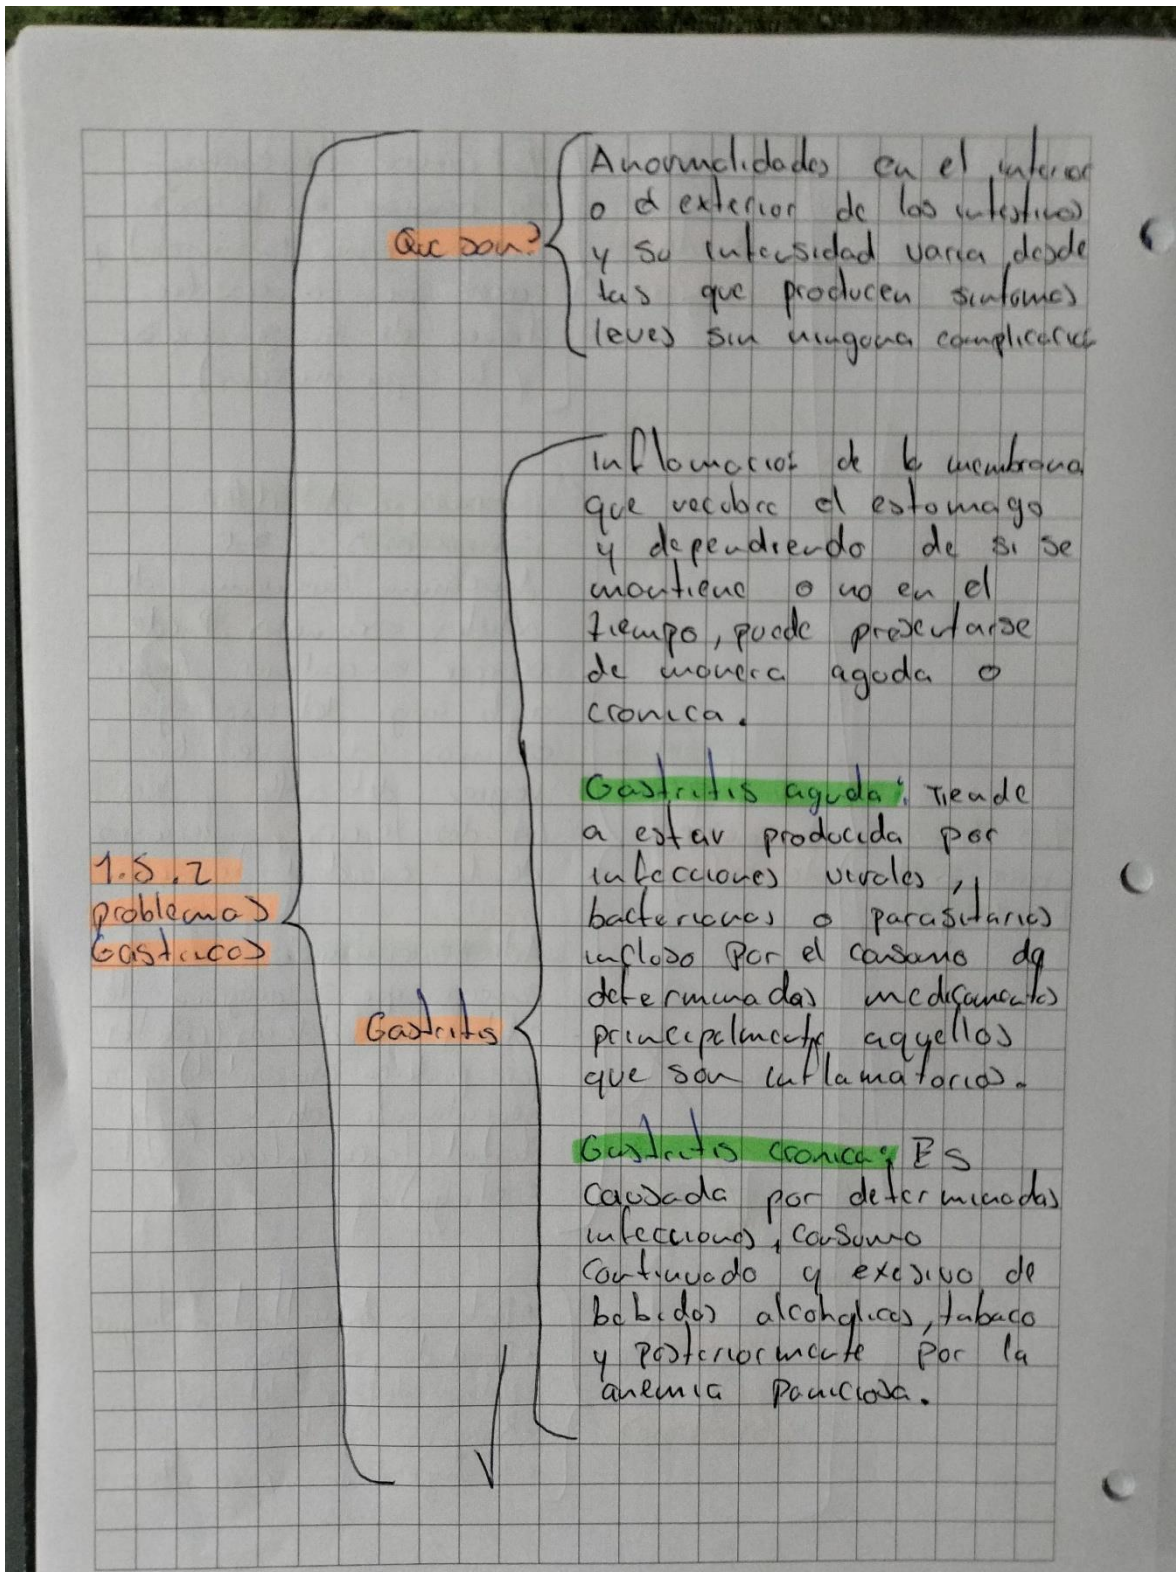 1.5.2
problemas
Gastricos
Que son?
Anormalidades en el interior
o el exterior de los intestinos
y su intensidad varia desde
las que producen sintomas
leves sin ninguna complicacion
Gastritis
inflamacion de la membrana
que recubre el estomago
y dependiendo de si se
mantiene o no en el
tiempo, puede presentarse
de manera aguda o
cronica.
Gastritis aguda: Tiende
a estar producida por
infecciones virales,
bacterianas o parasitarias
infloso por el consumo de
determinadas medicamentos
principalmente aquellos
que son inflamatorios.
Gastritis cronica: ES
causada por determinadas
infecciones, consumo
continuado y exesivo de
bebidas alcoholicas, tabaco
y posteriormente por la
anemia